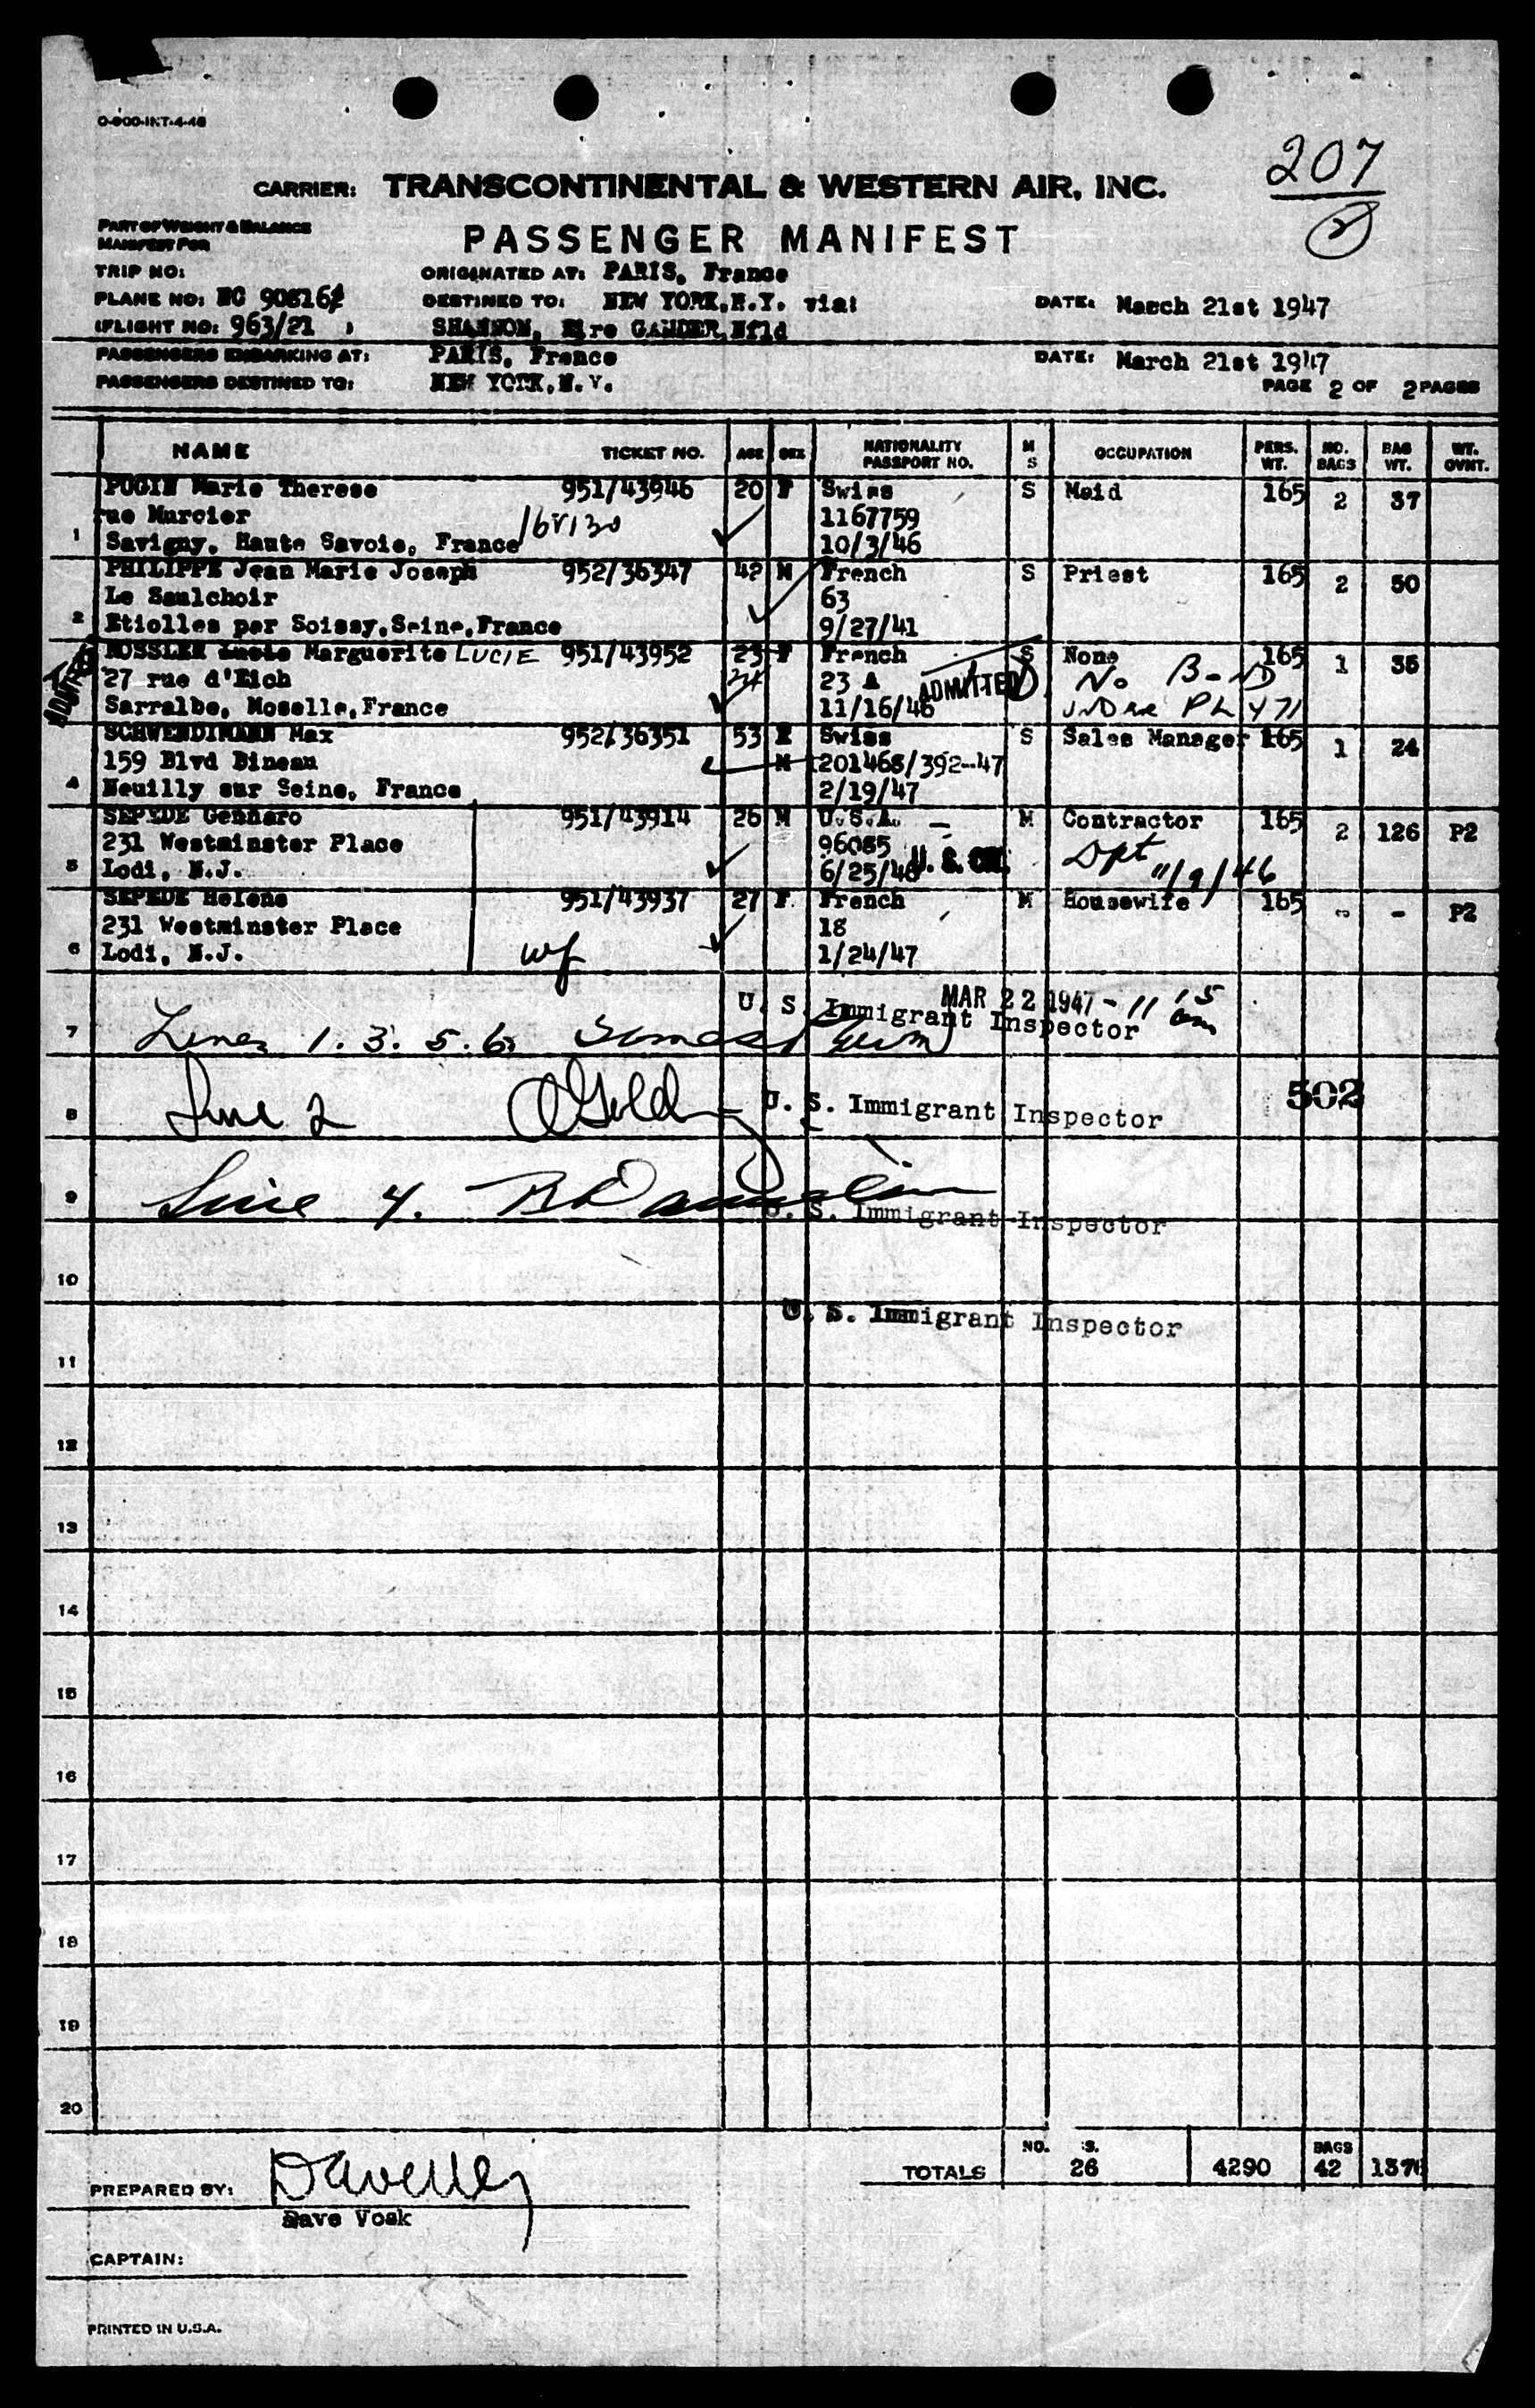 O-800-INT-4-46
207
2
CARRIER: TRANSCONTINENTAL & WESTERN AIR, INC.
PART OF WEIGHT & BALANCE
MANIFEST FOR
PASSENGER MANIFEST
TRIP NO: ORIGINATED AT: PARIS, France
PLANE NO: NC DESTINED TO: NEW YORK,N.Y. via: DATE: March 21st 1947
FLIGHT NO: 963/21 SHANNON, Eire GANDER,Nfld
PASSENGERS EMBARKING AT: PARIS, France DATE: March 21st 1947
PASSENGERS DESTINED TO: NEW YORK,N.Y. PAGE 2 OF 2 PAGES
NAME TICKET NO. AGE SEX NATIONALITY PASSPORT NO. M S OCCUPATION PERS. WT. NO. BAGS BAG WT. WT. OVNT.
PUGIN Marie Therese 951/43946 20 F Swiss S Maid 165 2 37
rue Murcier 1167759
1 Savigny, Haute Savoie, France 10/3/46
PHILIPPE Jean Marie Joseph 952/36347 42 M French S Priest 165 2 50
Le Saulchoir 63
2 Etiolles par Soissy,Seine,France 9/27/41
Marguerite LUCIE 951/43952 23 F French S None 165 1 35
27 rue d'Eich 24 23 A ADMITTED No Bond
ADMITTED Sarralbe, Moselle,France 11/16/46 UNDER PL 471
SCHWENDIMANN Max 952/36351 53 Swiss S Sales Manager 165 1 24
159 Blvd Bineau M 201468/392--47
4 Neuilly sur Seine, France 2/19/47
SEPEDE Gennaro 951/43914 26 M U.S.A. M Contractor 165 2 126 P2
231 Westminster Place 96085 Dpt
5 Lodi, N.J. 6/25/46 U. S. CIT. 11/9/46
SEPEDE Helene 951/43937 27 F French M Housewife 165 - - P2
231 Westminster Place 18
6 Lodi, N.J. wf 1/24/47
MAR 22 1947 - 11 15 am
U. S. Immigrant Inspector
7 Lines 1. 3. 5. 6.
8 Line 2 U. S. Immigrant Inspector 502
9 Line 4. U. S. Immigrant Inspector
10
U. S. Immigrant Inspector
11
12
13
14
15
16
17
18
19
20
NO. S. BAGS
TOTALS 26 4290 42
PREPARED BY:
Dave Vosk
CAPTAIN:
PRINTED IN U.S.A.